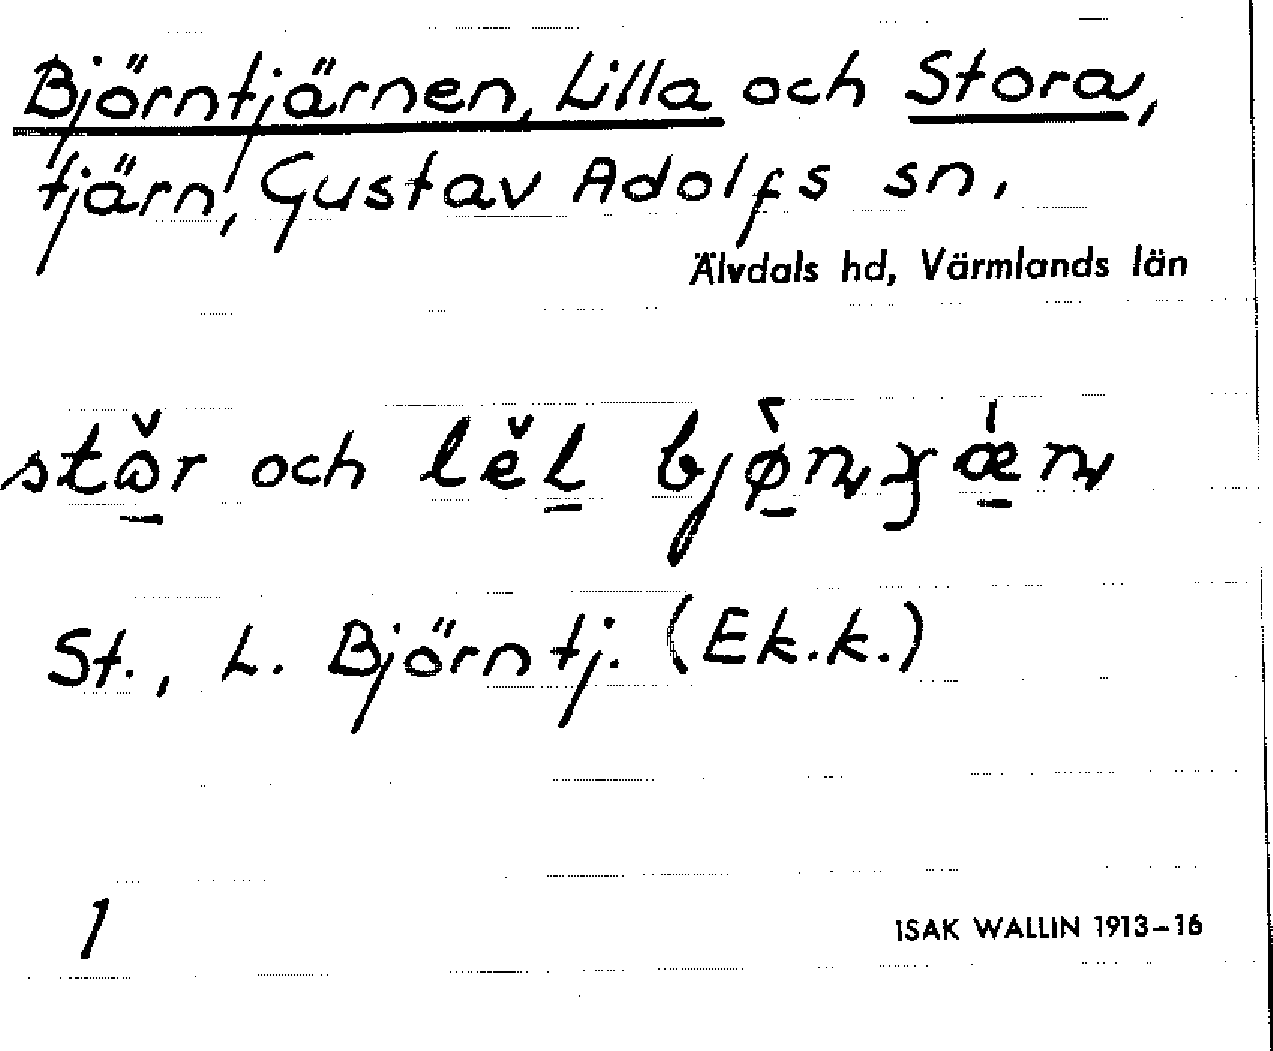 Björntjärnen, Lilla och Stora,
tjärn, Gustav Adolfs sn,
Älvdals hd, Värmlands län
och
St., L. Björntj. (Ek.k.)
1
ISAK WALLIN 1913–16